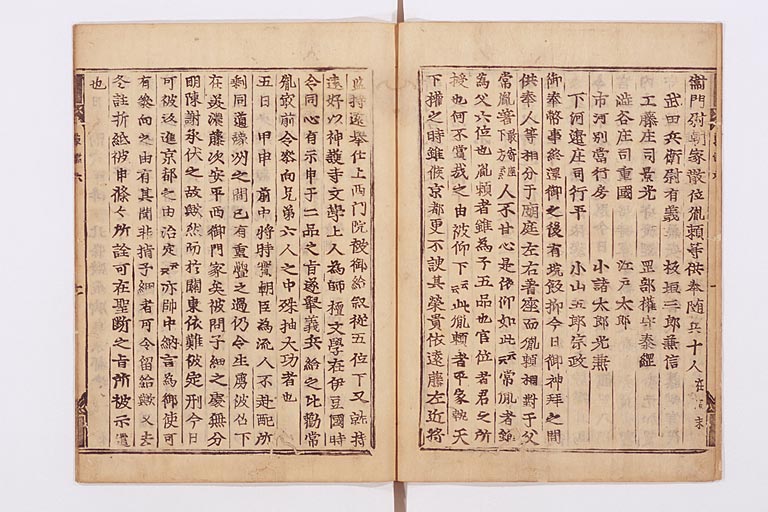 衛門尉朝家散位胤頼等供奉随兵十人在最末
武田兵衛尉有義 板垣三郎兼信
工藤庄司景光 岡部権守泰綱
渋谷庄司重國 江戸太郎
市河別當行房 小諸太郎光兼
下河邊庄司行平 小山五郎宗政
御奉幣事終還御之後有垸飯抑今日御神拝之間
供奉人等相分于廟庭左右著座而胤頼相對于父
常胤著人不甘心是依仰如此云云常胤者雖
為父六位也胤頼者雖為子五品也官位者君之所
授也何不賞哉之由被仰下云云此胤頼者平家執天
下權之時雖候京都更不諛其榮貴依遠藤左近将
監持遠擧仕上西門院彼御給叙従五位下又就持
遠好以神護寺文學上人為師檀文學在伊豆國時
令同心有示申于二品之旨遂擧義兵給之比勸常
胤最前令参向兄弟六人之中殊抽大功者也
五日 甲申 前中将時實朝臣為流人不赴配所
剰同道豫州之間已有重疊之過仍令生虜被召下
在美濃藤次安平西御門家矣被問子細之處無分
明陳謝承伏之故歟然而於關東依難被定刑今日
可被返進京都之由治定云云亦師中納言為御使可
有参向之由有其聞非指子細者可令留給歟又去
冬註折紙被申條々所詮可在聖断之旨所被示遣
也